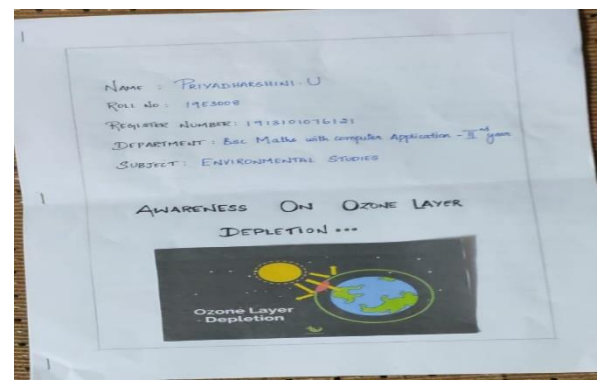 NAME : PRIYADHARSHINI. U
ROLL NO : 19E3008
REGISTER NUMBER : 1913101076121
DEPARTMENT : Bsc Maths with computer Application - II nd year
SUBJECT : ENVIRONMENTAL STUDIES
AWARENESS ON OZONE LAYER
DEPLETION...
Ozone Layer
Depletion